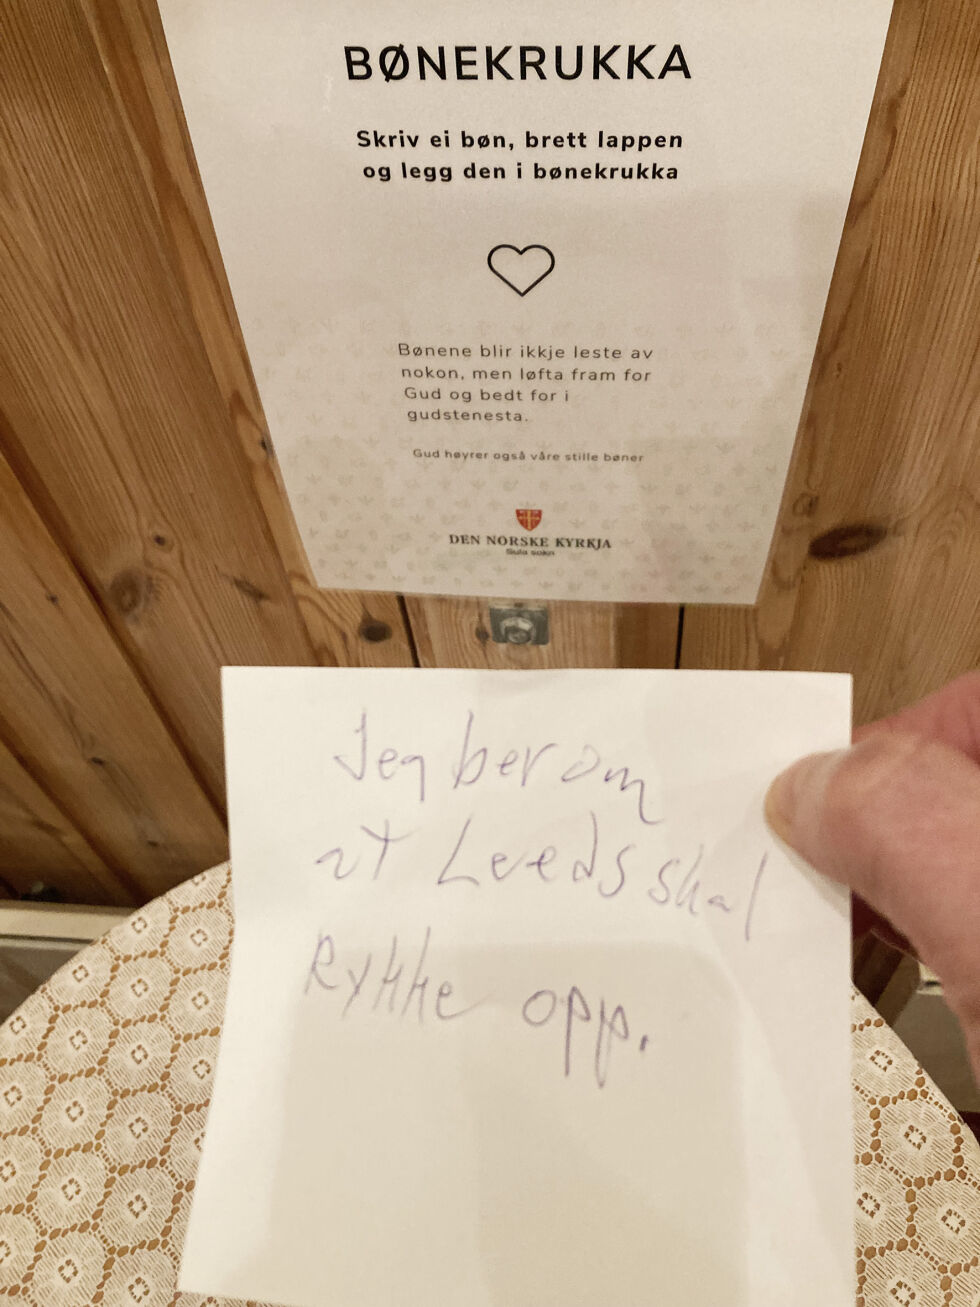 BØNEKRUKKA
Skriv ei bøn, brett lappen
og legg den i bønekrukka
Bønene blir ikkje leste av
nokon, men løfta fram for
Gud og bedt for i
gudstenesta.
Gud høyrer også våre stille bøner
DEN NORSKE KYRKJA
Sula sokn
Jeg ber om
at Leeds skal
Rykke opp.